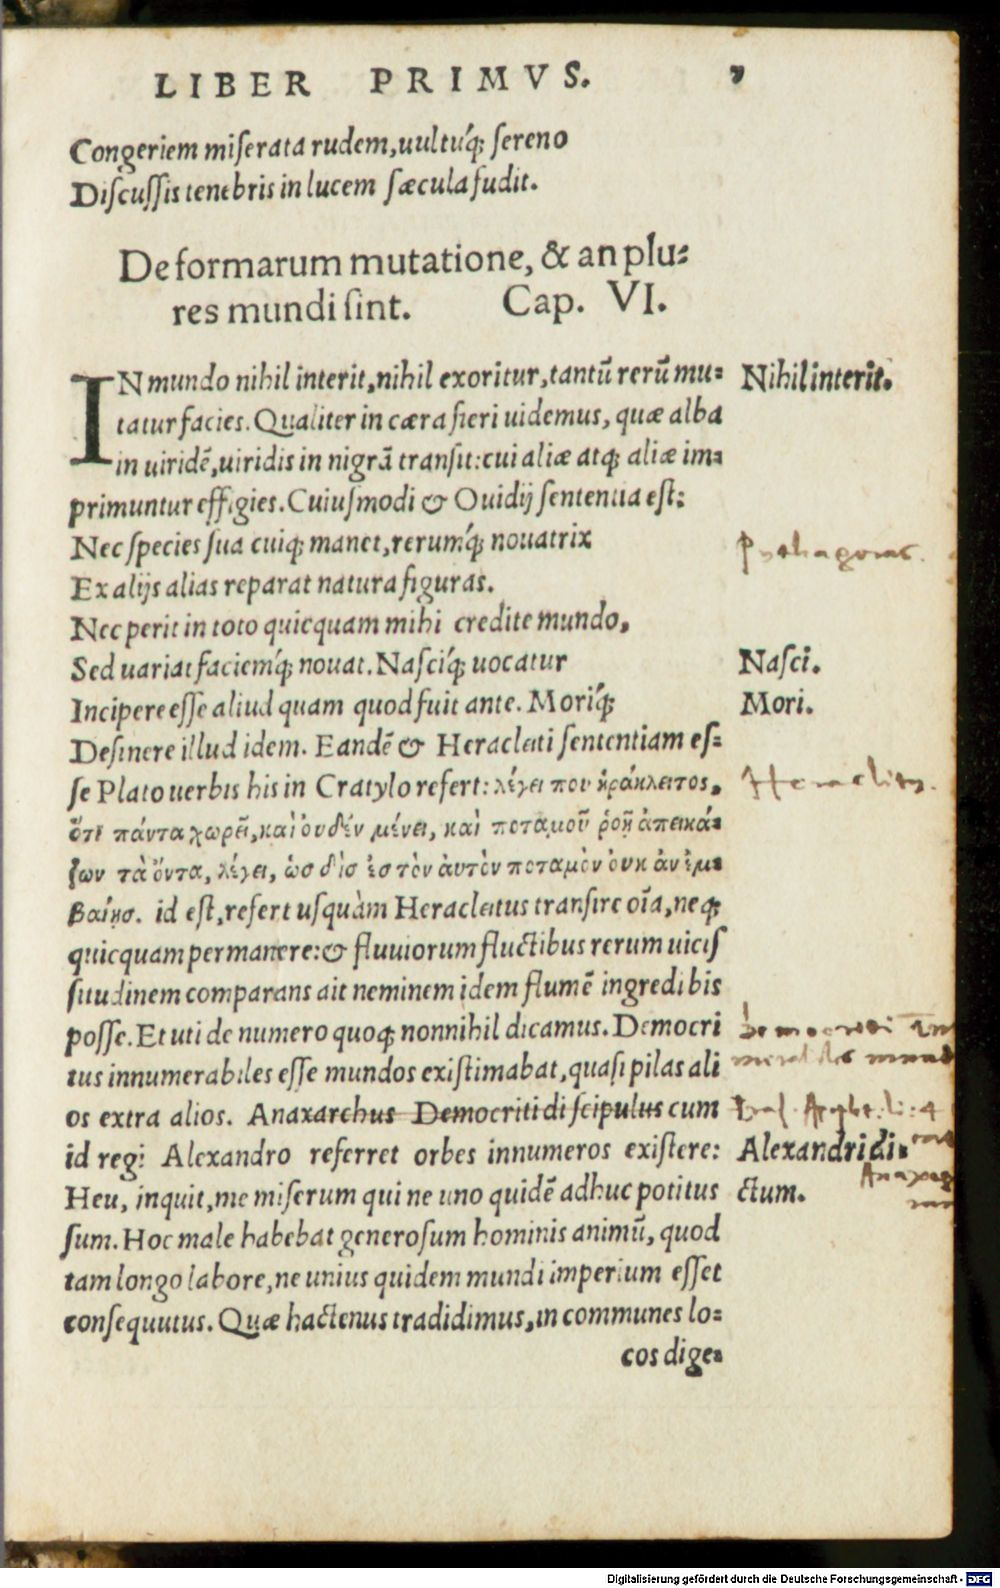 LIBER PRIMVS. 9
Congeriem miserata rudem, uultuq́; sereno
Discussis tenebris in lucem sæcula fudit.
De formarum mutatione, & an plu-
res mundi sint. Cap. VI.
IN mundo nihil interit, nihil exoritur, tantũ rerũ mu-
Nihil interit.
tatur facies. Qualiter in cæra fieri uidemus, quæ alba
in uiridẽ, uiridis in nigrã transit: cui aliæ atq; aliæ im-
primuntur effigies. Cuiusmodi & Ouidij sententia est:
Nec species sua cuiq; manet, rerumq́; nouatrix
Pythagoras.
Ex alijs alias reparat natura figuras.
Nec perit in toto quicquam mihi credite mundo,
Sed uariat faciemq́; nouat. Nasciq́; uocatur
Nasci.
Incipere esse aliud quam quod fuit ante. Moriq́;
Mori.
Desinere illud idem. Eandẽ & Heracleiti sententiam es-
se Plato uerbis his in Cratylo refert: λέγει που ἡράκλειτος,
Heraclitus.
ὅτι πάντα χωρεῖ, καὶ ουδέν μένει, καὶ ποταμοῦ ῥοῇ ἀπεικά-
ζων τὰ ὄντα, λέγει, ὡσ δὶσ ἐσ τὸν ἀυτὸν ποταμὸν ὀυκ ἀν ἐμ-
βαίησ. id est, refert usquàm Heracleitus transire oĩa, neq;
quicquam permanere: & fluuiorum fluctibus rerum uicis
situdinem comparans ait neminem idem flumẽ ingredi bis
posse. Et uti de numero quoq; nonnihil dicamus. Democri
Democriti
tus innumerabiles esse mundos existimabat, quasi pilas ali
os extra alios. Anaxarchus Democriti discipulus cum
id regi Alexandro referret orbes innumeros existere:
Alexandri di-
Heu, inquit, me miserum qui ne uno quidẽ adhuc potitus
ctum.
sum. Hoc male habebat generosum hominis animũ, quod
tam longo labore, ne unius quidem mundi imperium esset
consequutus. Quæ hactenus tradidimus, in communes lo-
cos dige-
Digitalisierung gefördert durch die Deutsche Forschungsgemeinschaft - DFG